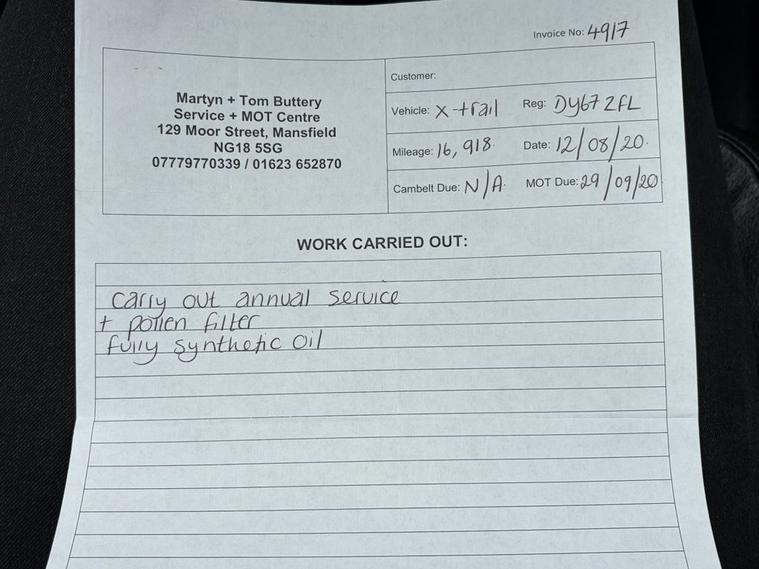 Invoice No: 4917
Martyn + Tom Buttery
Service + MOT Centre
129 Moor Street, Mansfield
NG18 5SG
07779770339 / 01623 652870
Customer:
Vehicle: X-trail Reg: DY67 ZFL
Mileage: 16,918. Date: 12/08/20.
Cambelt Due: N/A. MOT Due: 29/09/20
WORK CARRIED OUT:
carry out annual service
+ pollen filter
fully synthetic oil